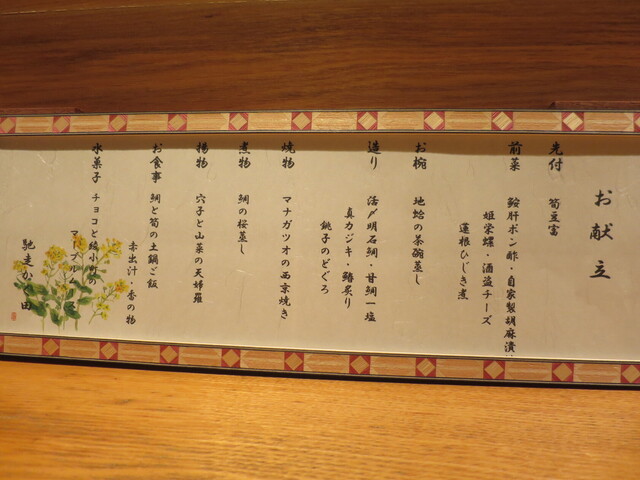 お献立
先付 筍豆富
前菜 鮟肝ポン酢・自家製胡麻漬け
姫栄螺・酒盗チーズ
蓮根ひじき煮
お椀 地蛤の茶碗蒸し
造り 活〆明石鯛・甘鯛一塩
真カジキ・鰆炙り
銚子のどぐろ
焼物 マナガツオの西京焼き
煮物 鯛の桜蒸し
揚物 穴子と山菜の天婦羅
お食事 鯛と筍の土鍋ご飯
赤出汁・香の物
水菓子 チョコと
マーブル
馳走か 田